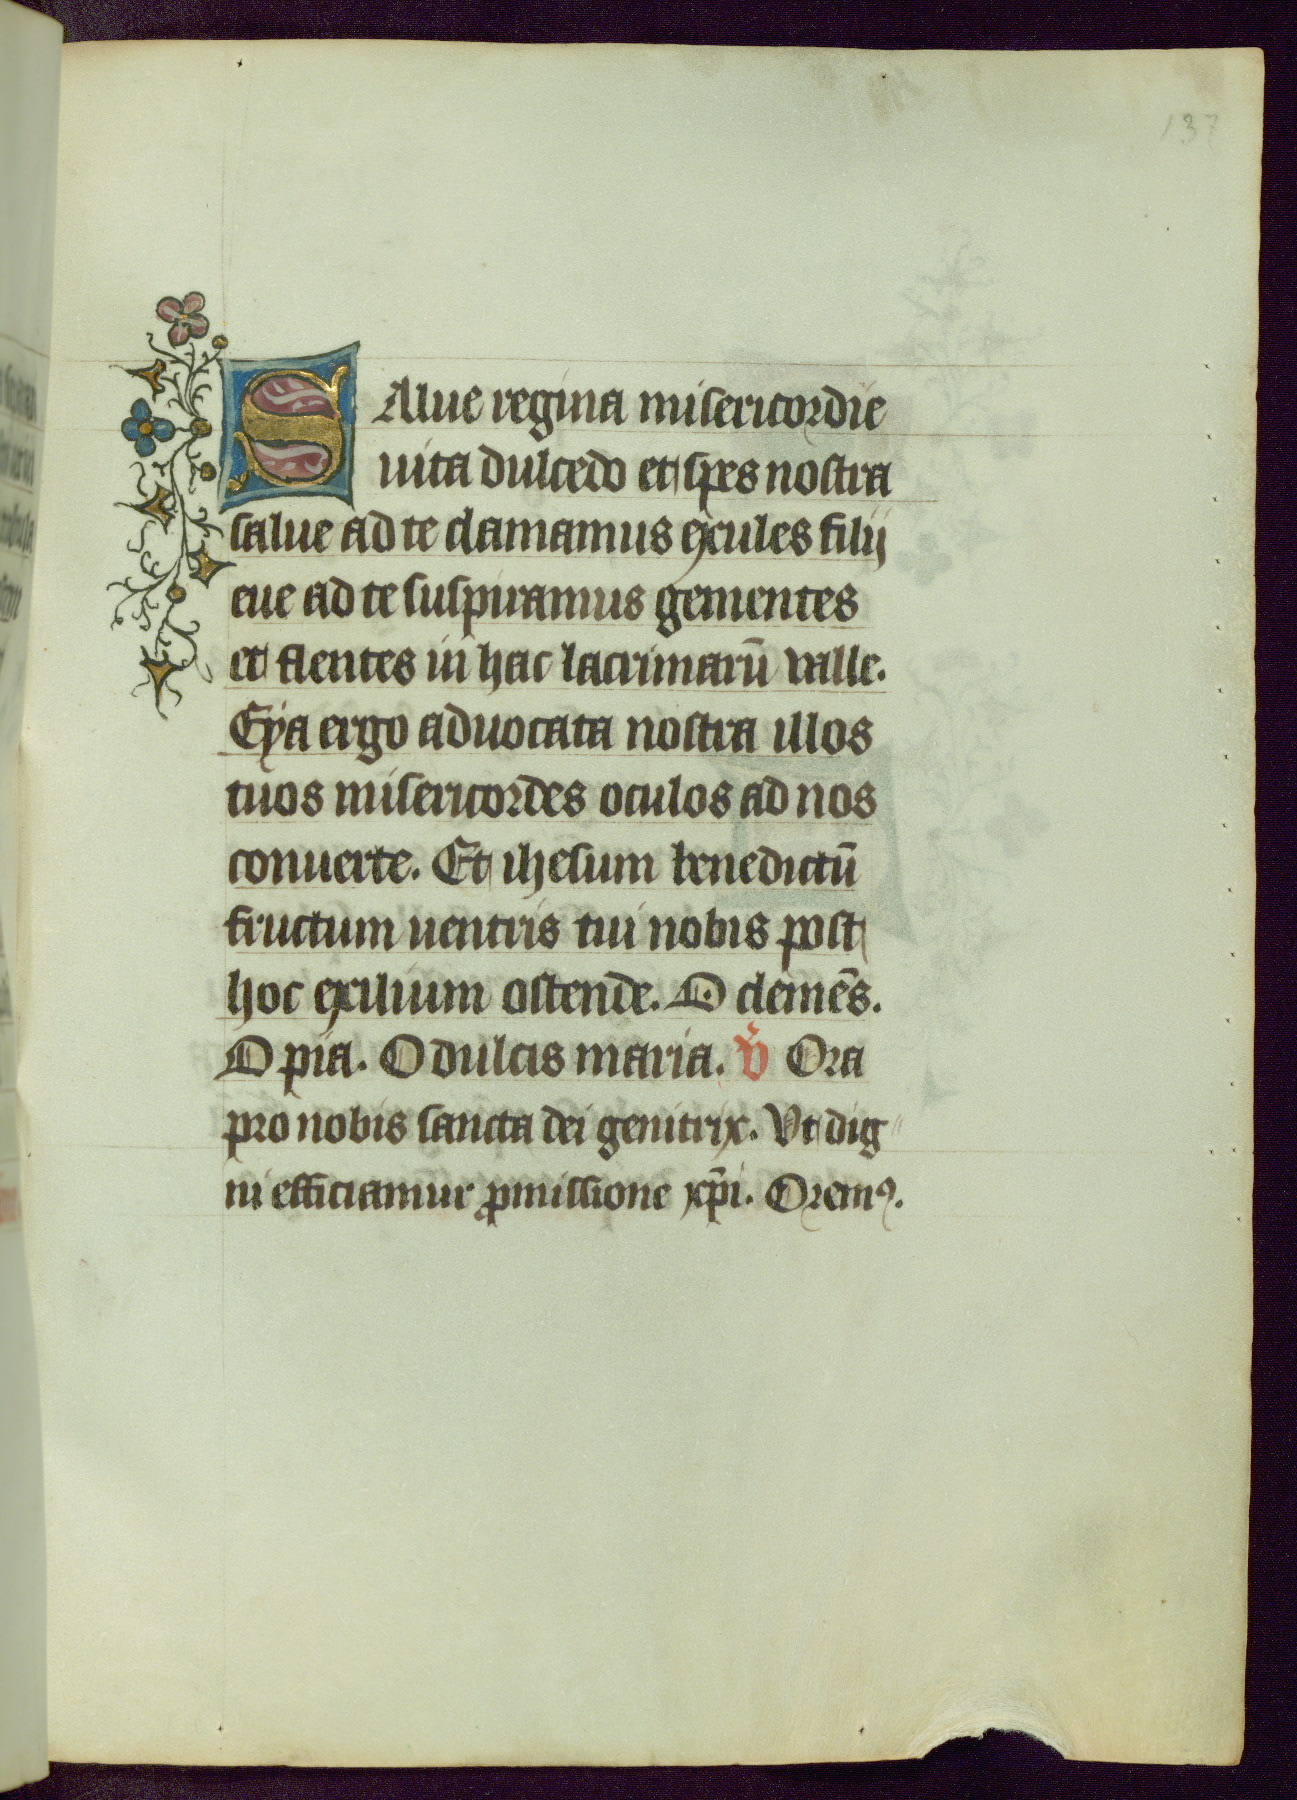 137
SAlue regina misericordie
uita dulcedo et spes nostra
salue ad te clamamus exules filij
eue ad te suspiramus gementes
et flentes in hac lacrimarū valle.
Eya ergo aduocata nostra illos
tuos misericordes oculos ad nos
conuerte. Et ihesum benedictū
fructum uentris tui nobis post
hoc exilium ostende. O clemēs.
O pia. O dulcis maria. v̄ Ora
pro nobis sancta dei genitrix. Vt dig"
ni efficiamur ꝓmissione xp̄i. Oremꝰ.